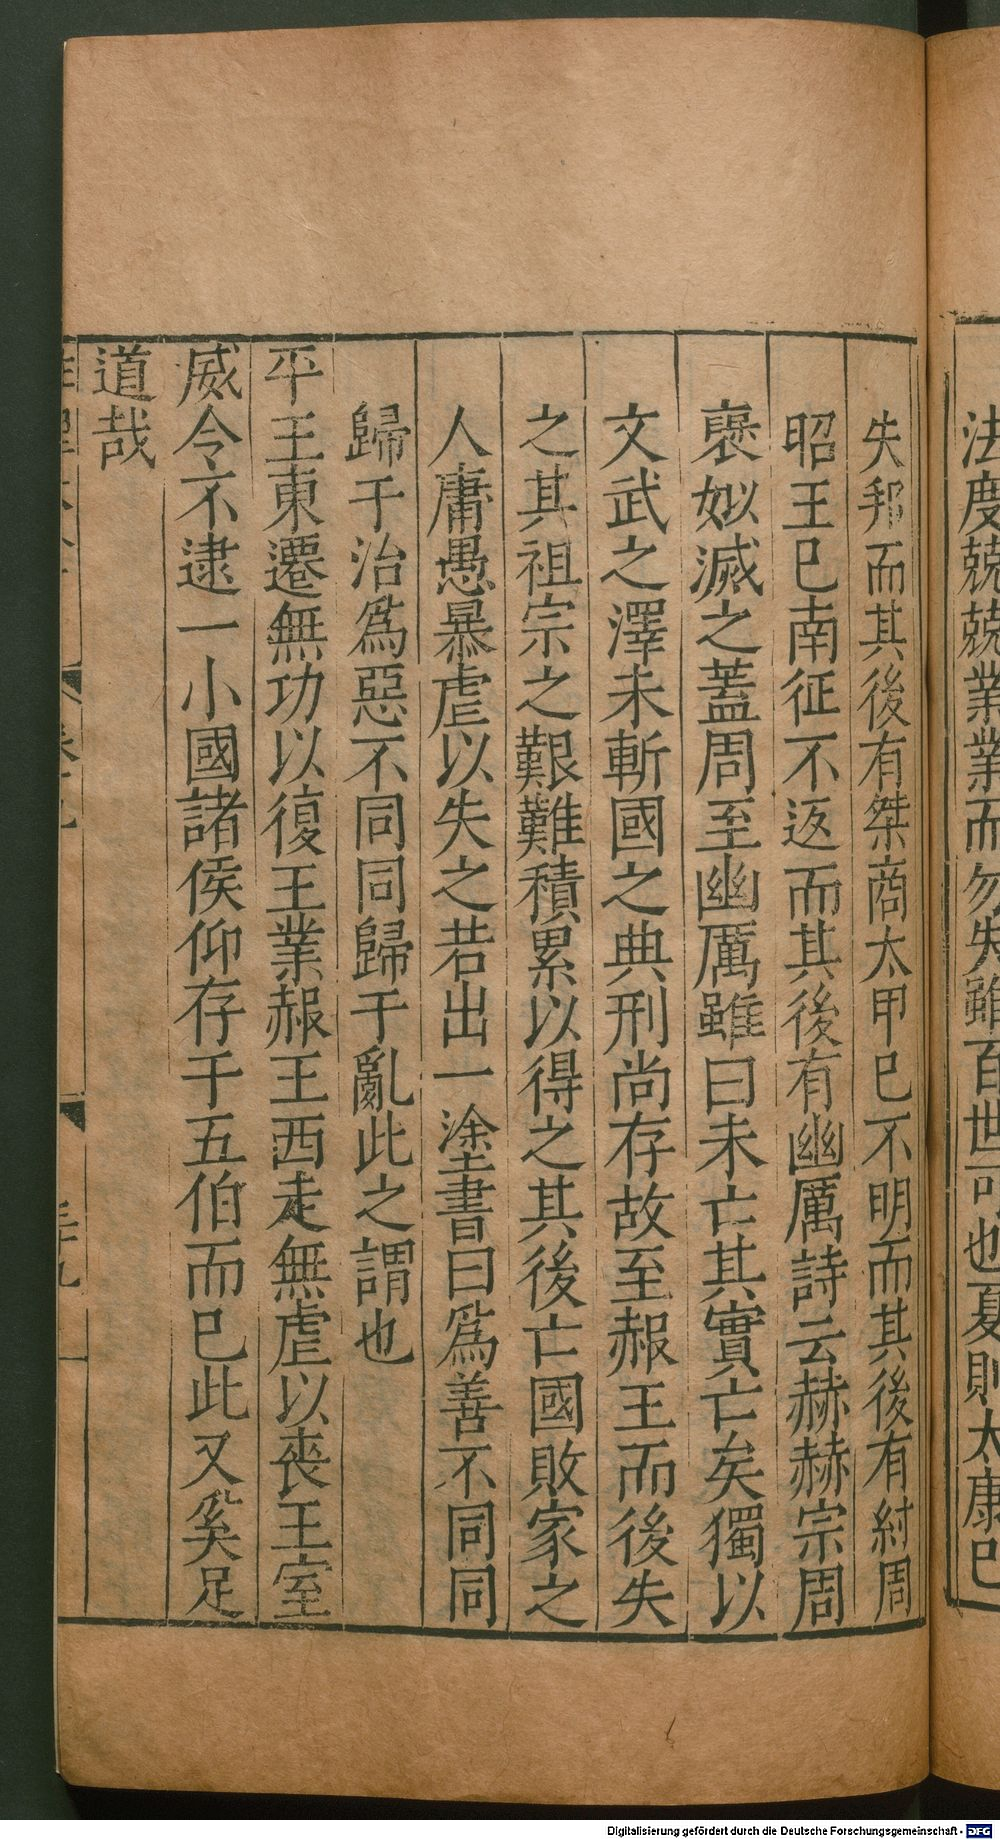 法度兢兢業業而勿失雖百世可也夏則太康已
失邦而其後有桀商太甲已不明而其後有紂周
昭王已南征不返而其後有幽厲詩云赫赫宗周
褒姒滅之蓋周至幽厲雖曰未亡其實亡矣獨以
文武之澤未斬國之典刑尚存故至赧王而後失
之其祖宗之艱難積累以得之其後亡國敗家之
人庸愚暴虐以失之若出一塗書曰爲善不同同
歸于治爲惡不同同歸于亂此之謂也
平王東遷無功以復王業赧王西走無虐以喪王室
威令不逮一小國諸侯仰存于五伯而已此又奚足
道哉
Digitalisierung gefördert durch die Deutsche Forschungsgemeinschaft - DFG